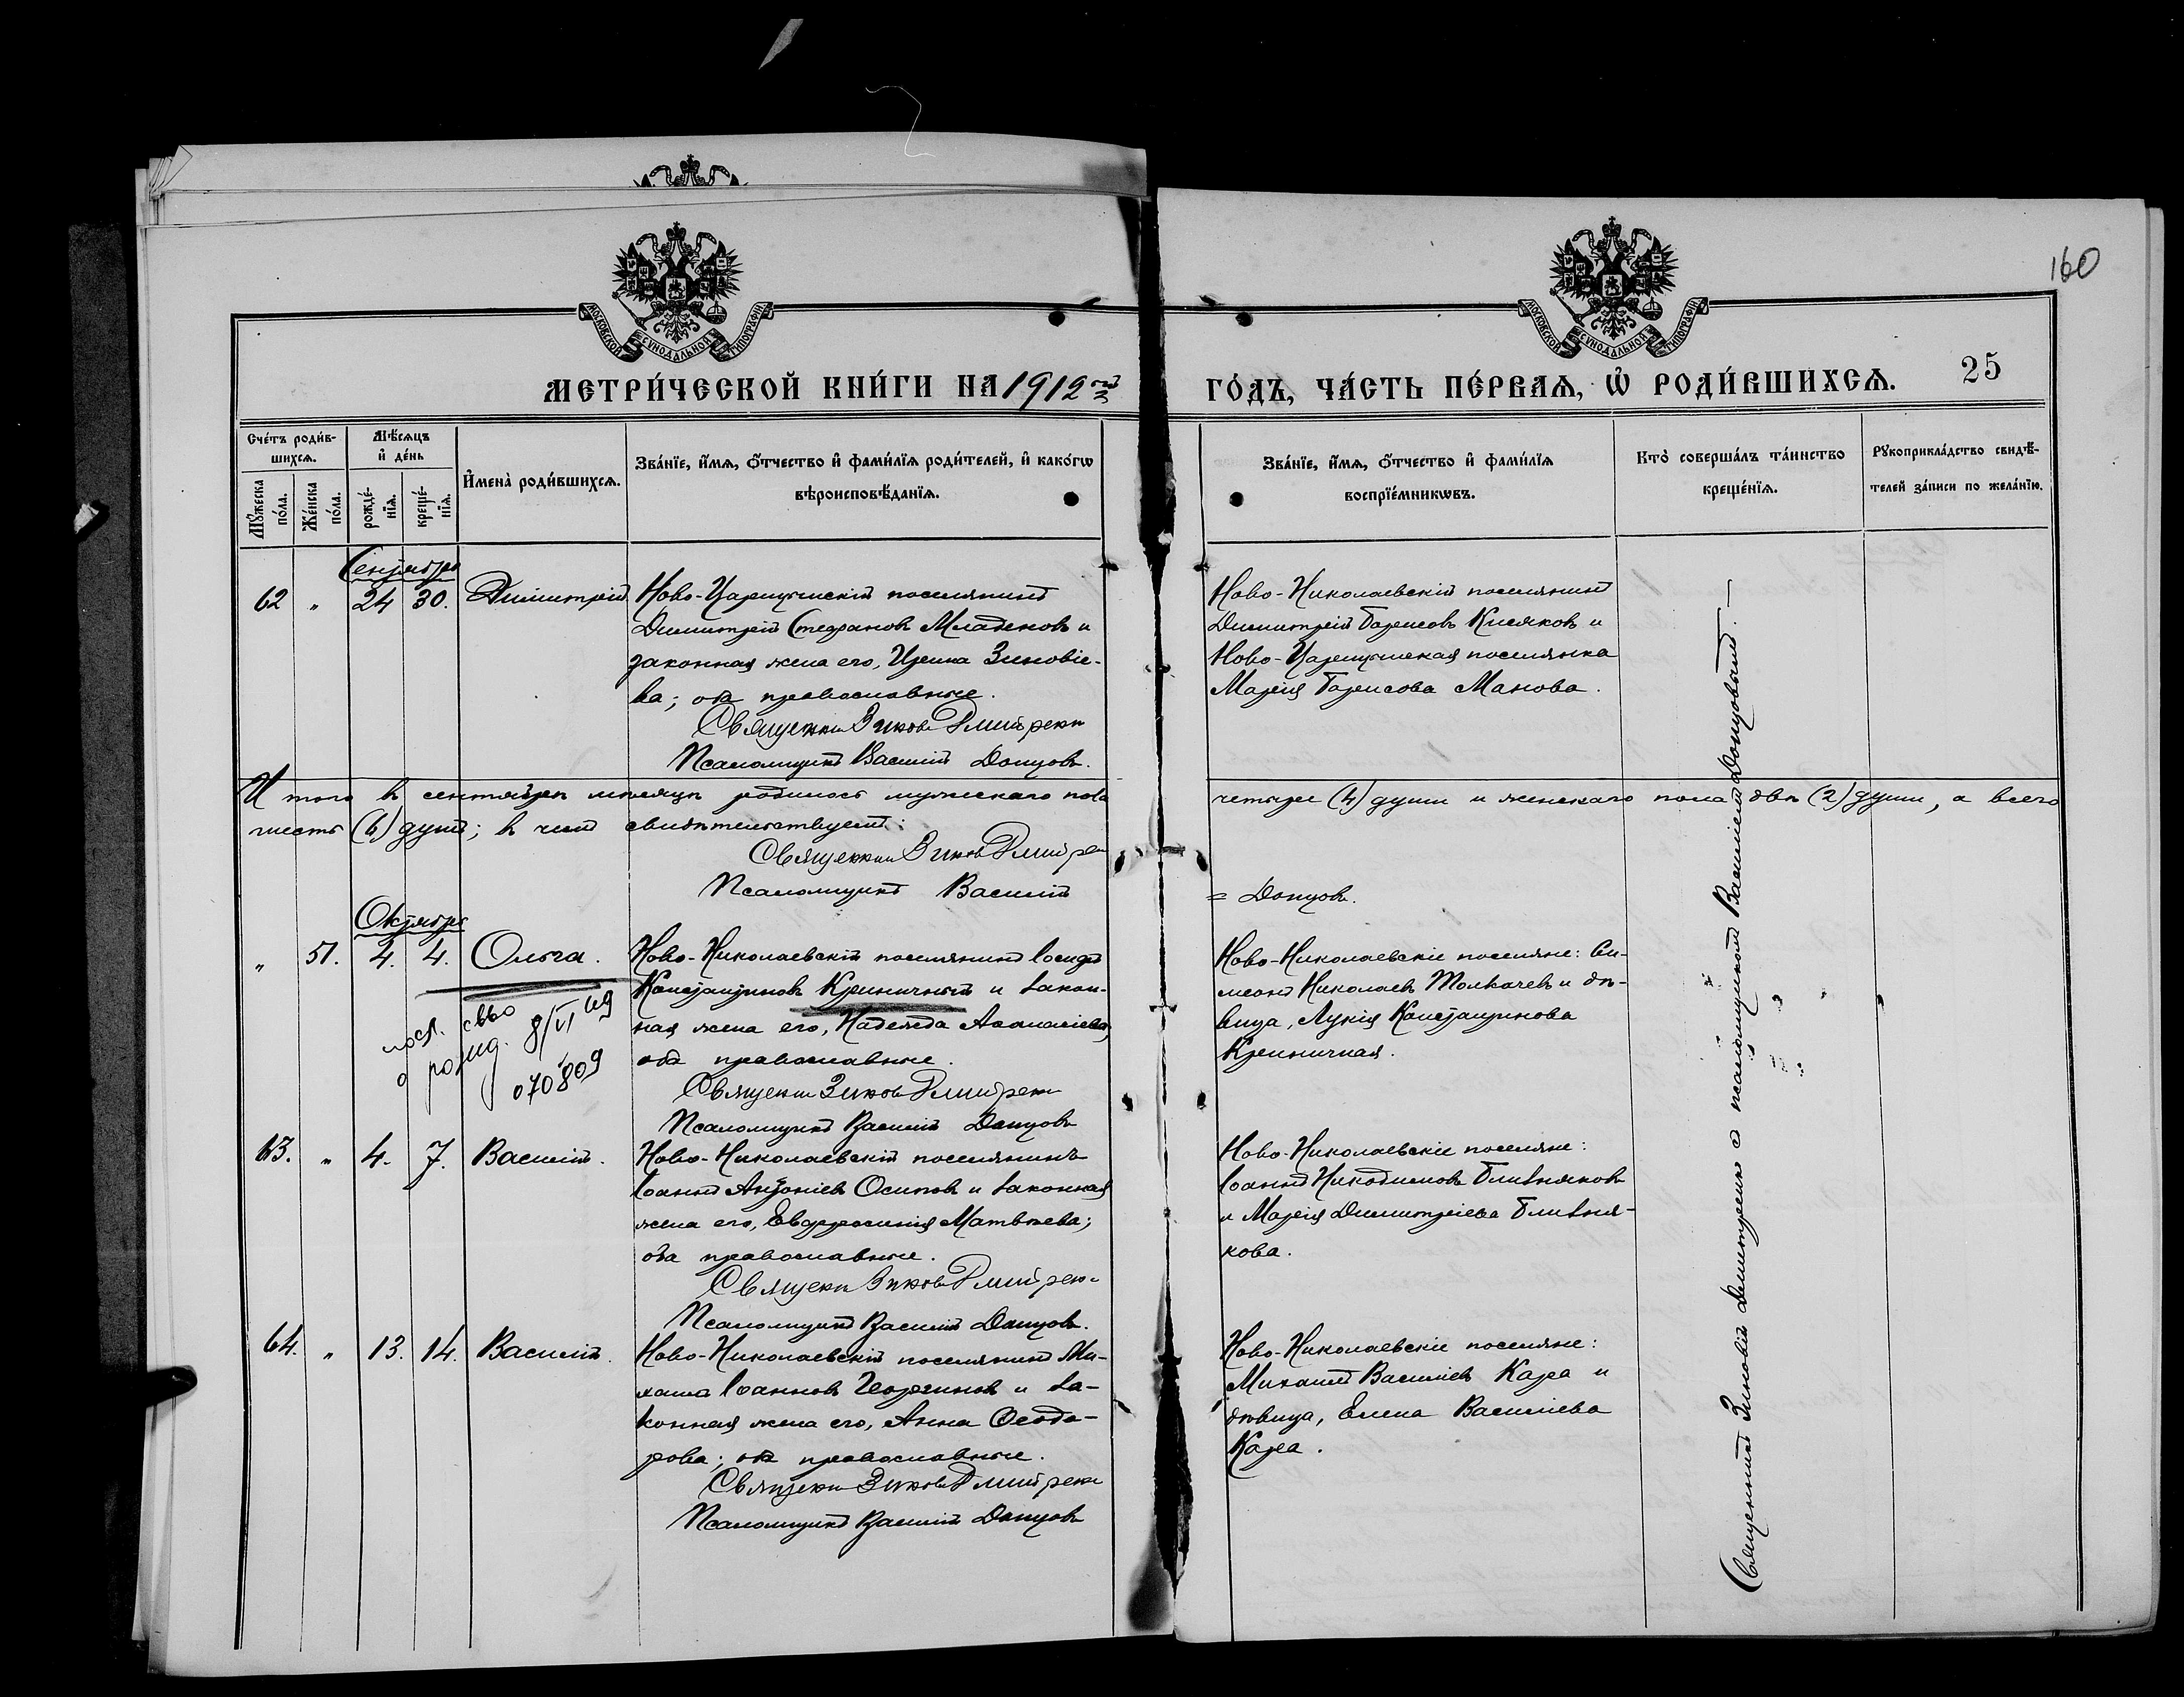 160
МОСКОВСКОЙ СѴНОДАЛЬНОЙ ТИПОГРАФІИ
МОСКОВСКОЙ СѴНОДАЛЬНОЙ ТИПОГРАФІИ
МЕТРИ́ЧЕСКОЙ КНИ́ГИ НА 1912й
ГО́ДЪ, ЧА́СТЬ ПЕ́РВАѦ, Ѡ҆ РОДИ́ВШИХСѦ. 25
Сче́тъ роди́в-
шихсѧ.
Мꙋ́жеска по́ла.
Же́нска по́ла.
Мѣ́сѧцъ
и҆ де́нь
рожде́-
нїѧ.
креще́-
нїѧ.
И҆мена̀ роди́вшихсѧ.
Зва́нїе, и҆́мѧ, ѻ҆́тчество и҆ фами́лїѧ роди́телей, и҆ како́гѡ
вѣроисповѣ́данїѧ.
Зва́нїе, и҆́мѧ, ѻ҆́тчество и҆ фами́лїѧ
воспрїе́мникѡвъ.
Кто̀ соверша́лъ та́инство
креще́нїѧ.
Рꙋкоприкла́дство свидѣ́-
телей за́писи по жела́нїю.
Сентябрь
62 „ 24 30. Димитрій
Ново-Царицынскій поселянинъ
Димитрій Стефановъ Младеновъ и
законная жена его, Ирина Зиновіе-
ва; оба православные.
Священник Зиновій Дмитренко
Псаломщикъ Василій Донцовъ.
Ново-Николаевскій поселянинъ
Димитрій Борисовъ Кисяковъ и
Ново-Царицынская поселянка
Марія Борисова Манова.
Итого въ сентябрѣ мѣсяцѣ родилось мужескаго пола четыре (4) души и женскаго пола двѣ (2) души, а всего
шесть (6) душъ; въ чемъ свидѣтельствуемъ:
Священник Зиновій Дмитренко
Псаломщикъ Василій
= Донцовъ.
Октябрь
„ 51. 4. 4. Ольга.
Ново-Николаевскій поселянинъ Іосифъ
Константиновъ Криничный и закон-
ная жена его, Надежда Аѳанасіева;
оба православные.
Священник Зиновій Дмитренко
Псаломщикъ Василій Донцовъ
Ново-Николаевскіе поселяне: Си-
меонъ Николаевъ Толкачевъ и дѣ-
вица, Лукія Константинова
Криничная.
посл. св-во
о рожд. 8/VI 69
070809
63. „ 4. 7. Василій.
Ново-Николаевскій поселянинъ
Іоаннъ Антоніевъ Осиповъ и законная
жена его, Евфросинія Матвѣева;
оба православные.
Священник Зиновій Дмитренко
Псаломщикъ Василій Донцовъ.
Ново-Николаевскіе поселяне:
Іоаннъ Никодимовъ Близняковъ
и Марія Димитріева Близня-
кова.
64. „ 13. 14. Василій.
Ново-Николаевскій поселянинъ Ми-
хаилъ Іоанновъ Георгиновъ и за-
конная жена его, Анна Ѳеодо-
рова; оба православные.
Священник Зиновій Дмитренко
Псаломщикъ Василій Донцовъ
Ново-Николаевскіе поселяне:
Михаилъ Василіевъ Кара и
дѣвица, Елена Василіева
Кара.
Священникъ Зиновій Димитренко съ псаломщикомъ Василіемъ Донцовымъ. —